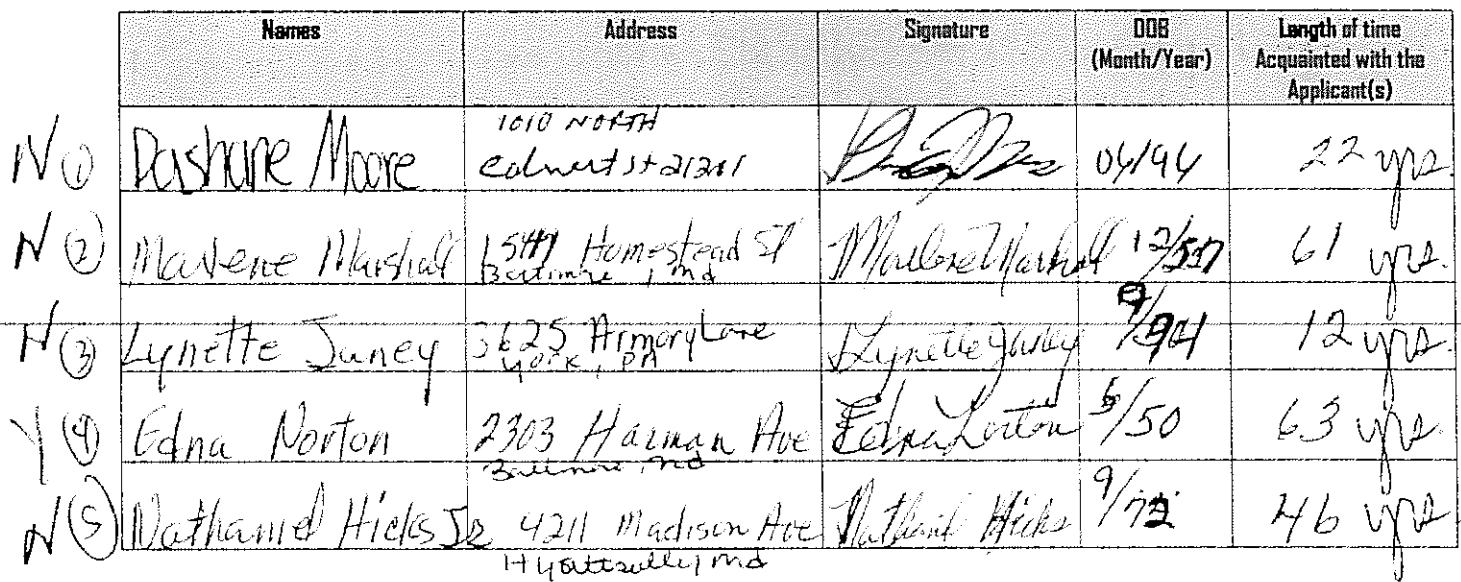 Names Address Signature DOB (Month/Year) Length of time Acquainted with the Applicant(s)
N ① Dashane Moore 1010 NORTH Calvert St 21201 04/94 22 yrs.
N ② Marlene Marshall 1547 Homestead St Baltimore, Md Marlene Marshall 12/57 61 yrs.
N ③ Lynette Janey 3625 Armory Lane York, PA Lynette Janey 9/74 12 yrs.
Y ④ Edna Norton 2303 Harman Ave Baltimore, Md Edna Norton 5/50 63 yrs.
N ⑤ Nathaniel Hicks Jr 4211 Madison Ave Hyattsville, Md Nathaniel Hicks 9/72 46 yrs